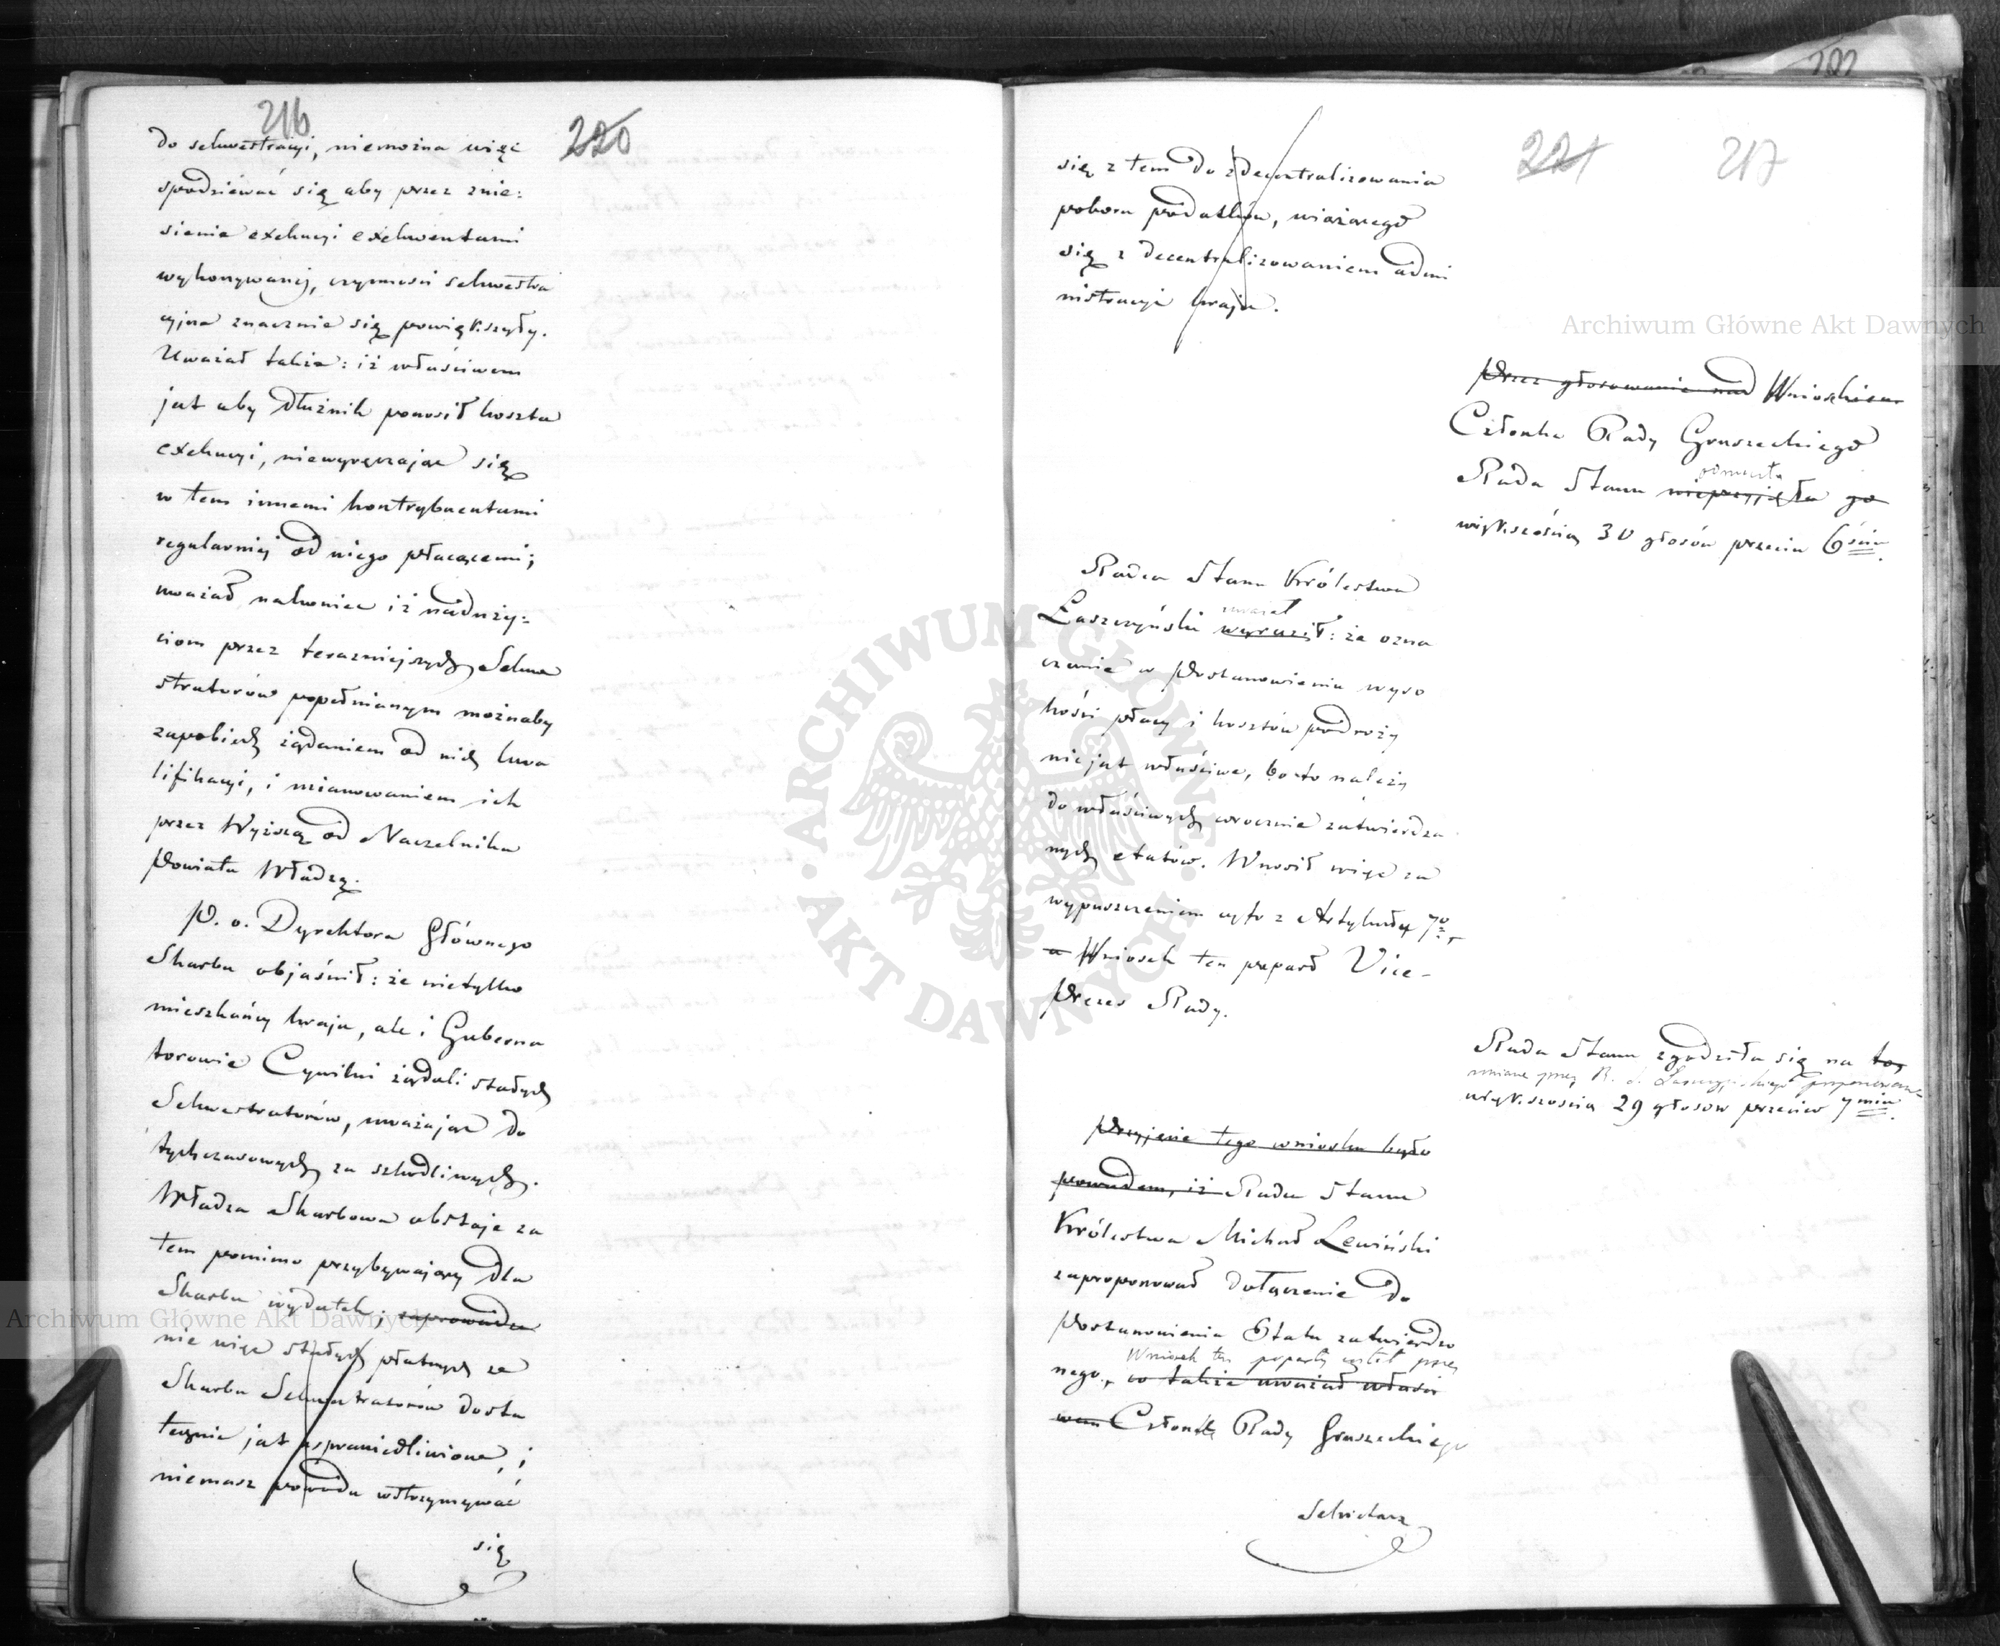 216
220
do sekwestracyi, niemożna więc
spodziewać się aby przez znie:
sienie exekucyi exekwentami
wykonywanej, czynności sekwestra
cyjne znacznie się powiększyły.
Uważał także: iż właściwem
jest aby dłużnik ponosił koszta
exekucyi, niewyręczając się
w tem innemi kontrybuentami
regularniej od niego płacącemi;
uważał nakoniec iż naduży:
ciom przez teraźniejszych Sekwe
stratorów popełnianym możnaby
zapobiedz żądaniem od nich kwa
lifikacyi, i mianowaniem ich
przez Wyższą od Naczelnika
Powiatu Władzę.
P. o. Dyrektora Głównego
Skarbu objaśnił: że nietylko
mieszkańcy kraju, ale i Guberna
torowie Cywilni żądali stałych
Sekwestratorów, uważając do
tychczasowych za szkodliwych.
Władza Skarbowa obstaje za
tem pomimo przybywający dla
Skarbu wydatek; zaprowadze
nie więc stałych płatnych ze
Skarbu Sekwestratorów dosta
tecznie jest usprawiedliwione, i
niemasz powodu wstrzymywać
się
222
221
217
się z tem do zdecentralizowania
poboru podatków, wiążącego
się z decentralizowaniem admi
nistracyi kraju.
Przez głosowanie nad Wnioskiem
Członka Rady Gruszeckiego
odrzuciła
Rada Stanu nieprzyjęła go
większością 30 głosów przeciw 6ciu.
Radca Stanu Królestwa
uważał
Łaszczyński wyraził: że ozna
czenie w Postanowieniu wyso
kości płacy i kosztów podróży
nie jest właściwe, bo to należy
do właściwych corocznie zatwierdza
nych etatów. Wnosił więc za
wypuszczeniem tego z Artykułu 7o,
a Wniosek ten poparł Vice-
Prezes Rady.
Rada Stanu zgodziła się na to
zmianę przez R. S. Łaszczyńskiego proponowaną
większością 29 głosów przeciw 7miu.
Przyjęcie tego wniosku było
powodem, iż Radca Stanu
Królestwa Michał Lewiński
zaproponował dołączenie do
Postanowienia Etatu zatwierdzo
Wniosek ten poparty został przez
nego, co także uważał właści
wem Członka Rady Gruszeckiego
Sekretarz
Archiwum Główne Akt Dawnych
Archiwum Główne Akt Dawnych
ARCHIWUM GŁÓWNE AKT DAWNYCH